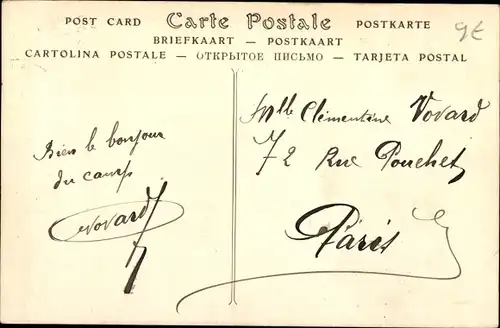 POST CARD Carte Postale POSTKARTE
BRIEFKAART — POSTKAART
CARTOLINA POSTALE — ОТКРЫТОЕ ПИСЬМО — TARJETA POSTAL
9€
Bien le bonjour
du camp
Vovard
Mlle Clémentine Vovard
72 Rue Pouchet
Paris